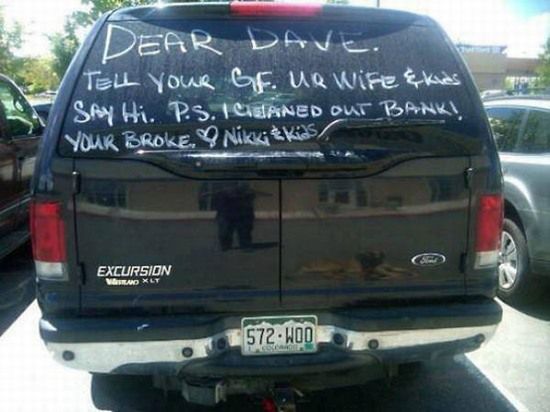 DEAR DAVE.
TELL YOUR GF. UR WIFE & KIDS
SAY Hi. P.S. I CLEANED OUT BANK!
YOUR BROKE. ♡ NiKKi & KiDS
EXCURSION
XLT
Ford
572·WOO
COLORADO